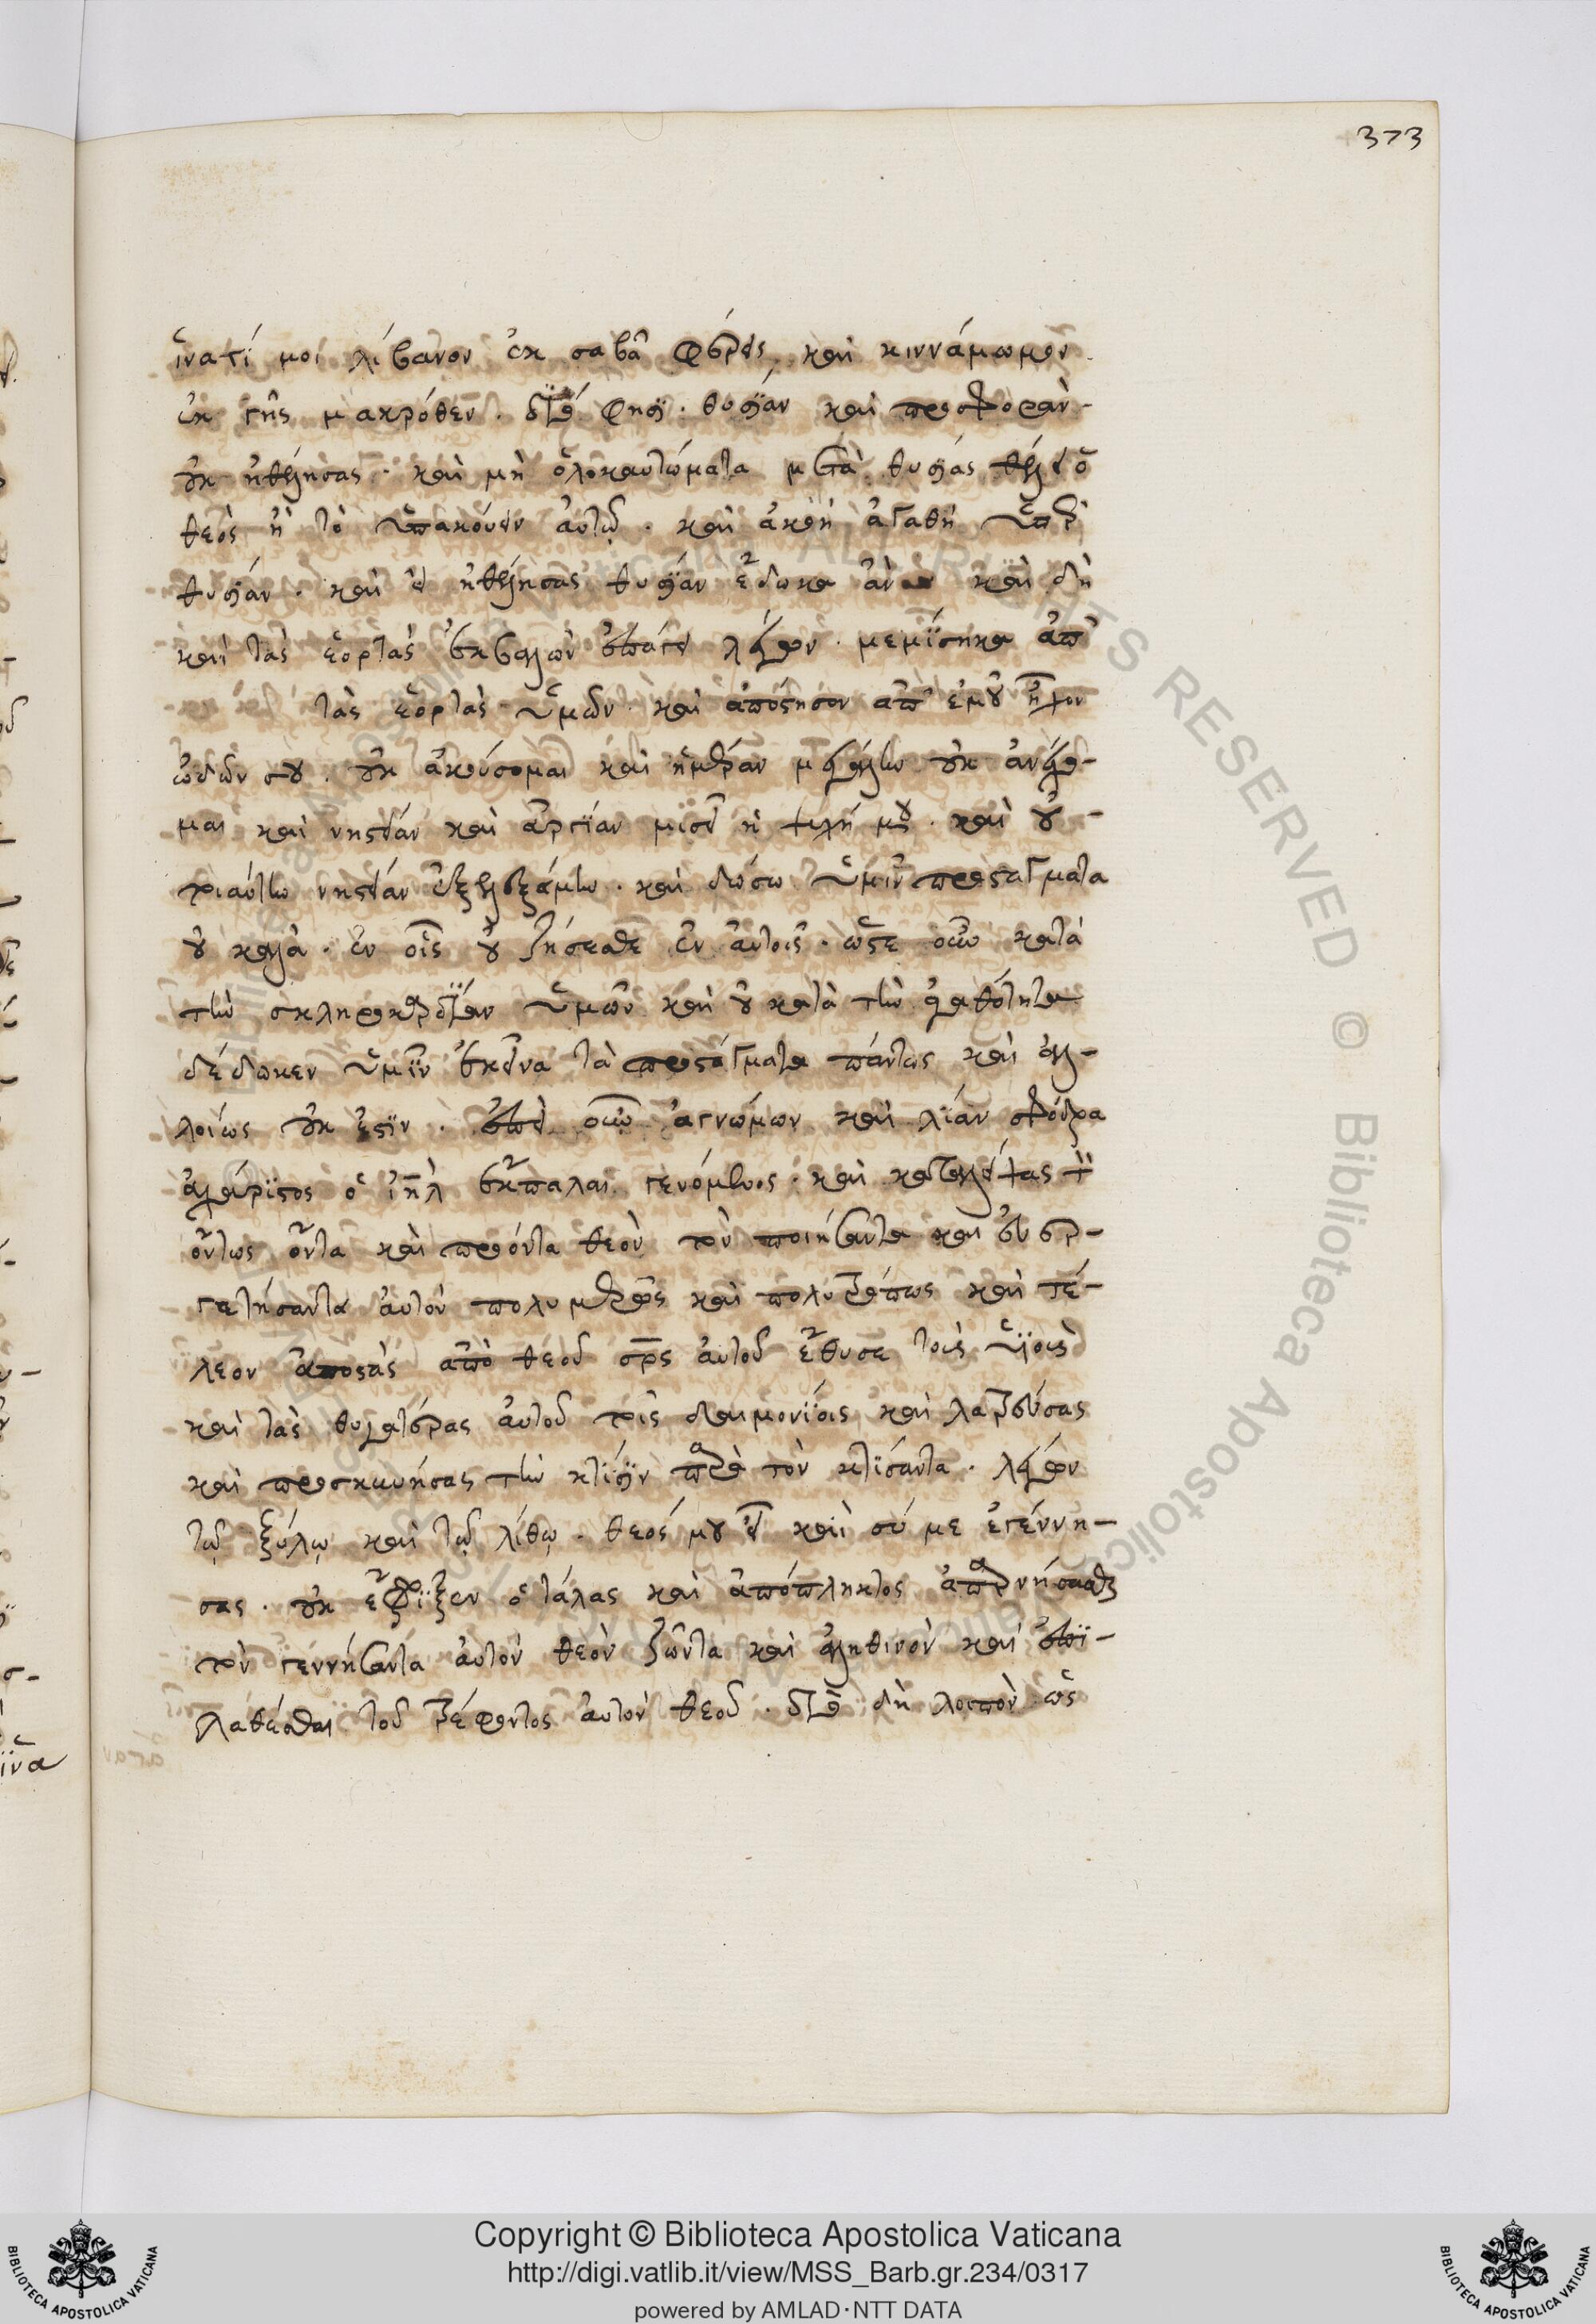 373
ἵνατί μοι λίβανον ἐκ σαβᾶ φέρεις, καὶ κιννάμωμον
ἐκ γῆς μακρόθεν. διὰ φησὶ. θυσίαν καὶ προσφορὰν-
οὐκ ἠθέλησας. καὶ μὴ ὁλοκαυτώματα μετὰ θυσίας θέλει ὁ
θεὸς ἢ τὸ ὑπακούειν αὐτῷ. καὶ ἀκοὴ ἀγαθὴ ὑπὲρ
θυσίαν. καὶ εἰ ἠθέλησας θυσίαν ἔδωκα ἂν καὶ δὴ
καὶ τὰς ἑορτὰς ἐκβαλὼν ἐπάγει λέγων. μεμίσηκα ἀπ
τὰς ἑορτὰς ὑμῶν. καὶ ἀπόστησον ἀπ' ἐμοῦ ἦχον
ὠδῶν σου. οὐκ ἀκούσομαι καὶ ἡμέραν μεγάλην οὐκ ἀνέχο-
μαι καὶ νηστείαν καὶ ἀργίαν μισεῖ ἡ ψυχή μου. καὶ οὐ-
τοιαύτην νηστείαν ἐξελεξάμην. καὶ δώσω ὑμῖν προστάγματα
οὐ καλὰ. ἐν οἷς οὐ ζήσεσθε ἐν αὐτοῖς. ὥστε οὖν κατὰ
τὴν σκληροκαρδίαν ὑμῶν καὶ οὐ κατὰ τὴν ἀγαθότητα
δέδωκεν ὑμῖν ἐκεῖνα τὰ προστάγματα πάντως καὶ ἀλ-
λοίως οὐκ ἔστιν. ἐπεὶ οὖν ἀγνώμων καὶ λίαν σφόδρα
ἀχάριστος ὁ ἰηλ ἔκπαλαι γενόμενος. καὶ καταλείψας τὸν
ὄντως ὄντα καὶ προόντα θεὸν τὸν ποιήσαντα καὶ εὐερ-
γετήσαντα αὐτὸν πολυμερῶς καὶ πολυτρόπως καὶ τέ-
λεον ἀποστὰς ἀπὸ θεοῦ σρς αὐτοῦ ἔθυσε τοὺς υἱοὺς
καὶ τὰς θυγατέρας αὐτοῦ τοῖς δαιμονίοις καὶ λατρεύσας
καὶ προσκυνήσας τὴν κτίσιν παρὰ τὸν κτίσαντα. λέγων
τῷ ξύλῳ καὶ τῷ λίθῳ. θεός μου εἶ καὶ σύ με ἐγέννη-
σας. οὐκ ἔφριξεν ὁ τάλας καὶ ἀπόπληκτος ἀπαρνήσασθαι
τὸν γεννήσαντα αὐτὸν θεὸν ζῶντα καὶ ἀληθινὸν καὶ ἐπι-
λαθέσθαι τοῦ τρέφοντος αὐτὸν θεοῦ. διὰ δὴ λοιπὸν ὡς
ἵνα
Copyright © Biblioteca Apostolica Vaticana
http://digi.vatlib.it/view/MSS_Barb.gr.234/0317
powered by AMLAD·NTT DATA
BIBLIOTECA APOSTOLICA VATICANA
BIBLIOTECA APOSTOLICA VATICANA